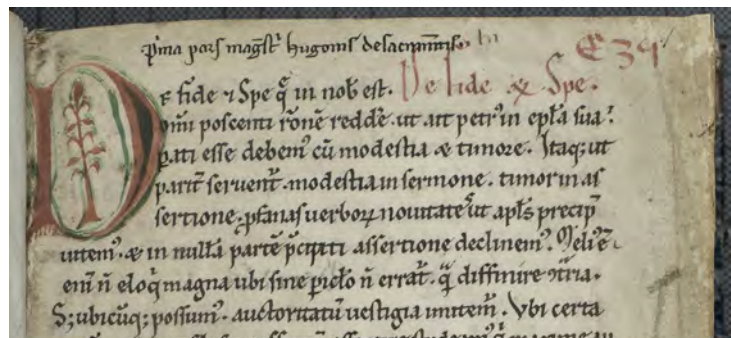 p̄ma pars mag̃str̃ hugonis de sacram̃tis.
De fide ⁊ Spe q̃ in nob̃ est. De fide & Spe.
om̃i poscenti r̃onẽ reddẽ. ut ait petrꝰ in ep̃l̃a sua.
parati esse debemꝰ cũ modestia & timore. Itaq; ut
parit̃ seruet̃. modestia in sermone. timor in as
sertione. ꝓfanas uerboꝝ nouitates ut ap̃ls precip̃
uitemꝰ. & in nullã partẽ p̃cipiti assertione declinemꝰ. Meliꝰ ẽ
eni ñ eloq̃ magna ubi sine piclo ñ errat̃. q̃ diffinire
S; ubicũq; possumꝰ. auctoritatũ uestigia imitem̃. Vbi certa